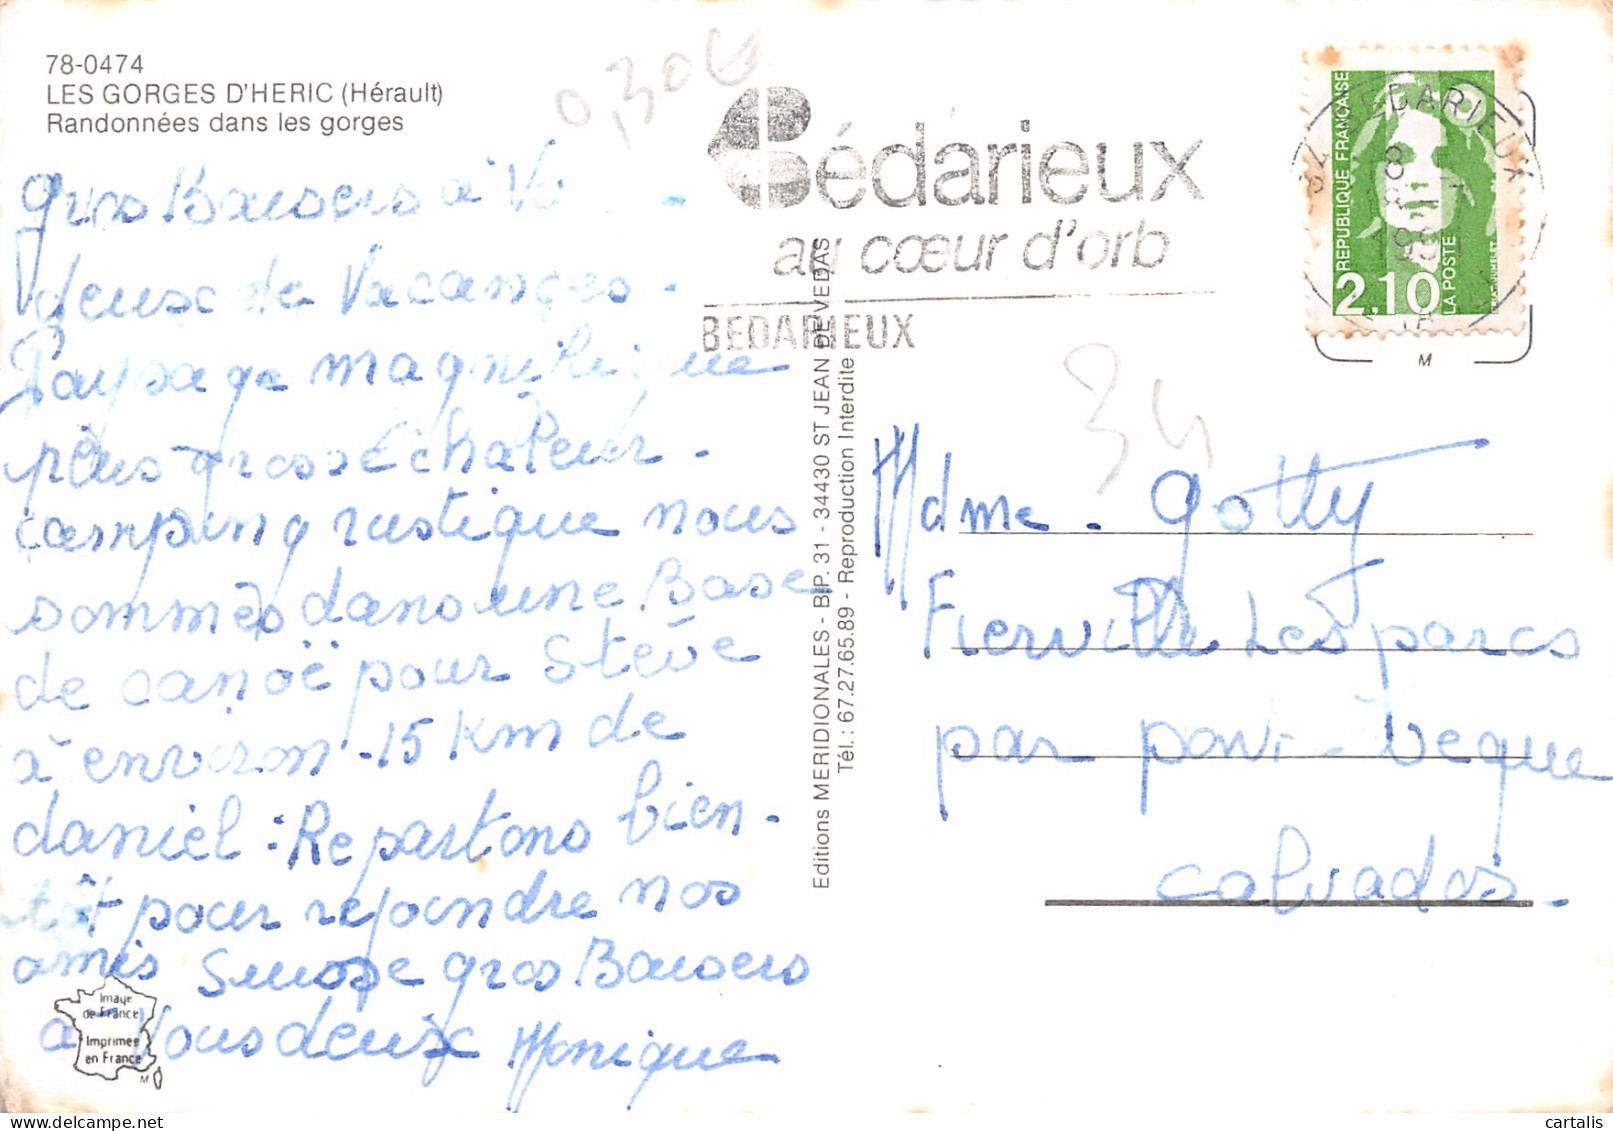 78-0474
LES GORGES D'HERIC (Hérault)
Randonnées dans les gorges
0,30€
Bédarieux
au cœur d'orb
BEDARIEUX
BEDARIEUX
34
18
REPUBLIQUE FRANÇAISE
2,10
LA POSTE
M
gros Baisers à
deux de Vacances -
Paysage magnifique
plus grosse chaleur -
camping rustique nous
sommes dans une Base
de canoë pour Stève
à environ - 15 km de
daniel : Repartons bien-
tôt pour rejoindre nos
amis Suisse gros Baisers
à Vous deux Monique
Image
de France
Imprimée
en France
M
Editions MERIDIONALES - B.P. 31 - 34430 ST JEAN DE VEDAS
Tél.: 67.27.65.89 - Reproduction Interdite
34
Mdme. Gotty
Fierville Les parcs
par pont-évêque
calvados.
cartalis